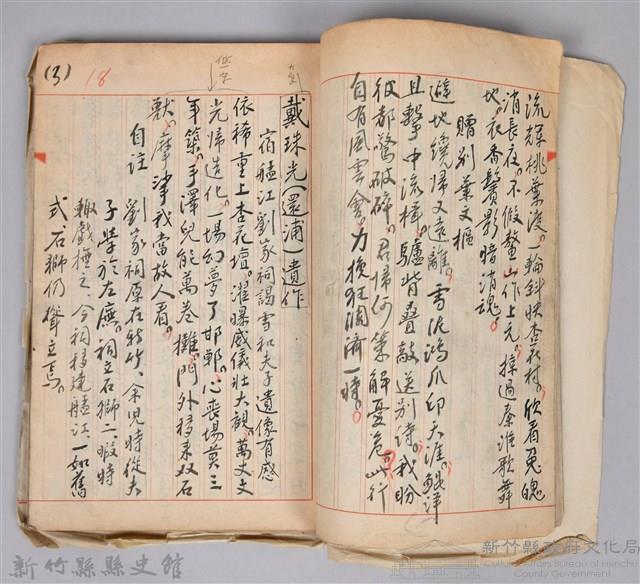 流輝桃葉渡。一輪斜映杏花村。欣看兔魄
消長夜。不假鰲山作上元。過秦淮歌舞
地。衣香鬢影暗消魂。
贈別葉文樞
避地纔歸又遠離。雪泥鴻爪印天涯。洋
且擊中流楫。驢背疊敲送別詩。我盼
彼都驚破碎。君歸何策解憂危。此行
自有風雲會。力換狂瀾濟一時。
(3)
18
戴珠光(還浦)遺作
宿艋江劉家祠謁雪和夫子遺像有感
依稀重上杏花壇。濯曝威儀壯大觀。萬丈文
光歸造化。一場幻夢了邯鄲。心喪場莫三
年築。手澤兒能萬卷攤。門外移來双石
獸。摩挲我當故人看。
自注 劉家祠原在新竹、余児時從夫
子學於左廡。祠立石獅二、暇時
輒戲之、今祠移建艋江、一如舊
式石獅仍聳立焉。
新竹縣縣史館
新竹縣政府文化局
Cultural Affairs Bureau of Hsinchu
County Government